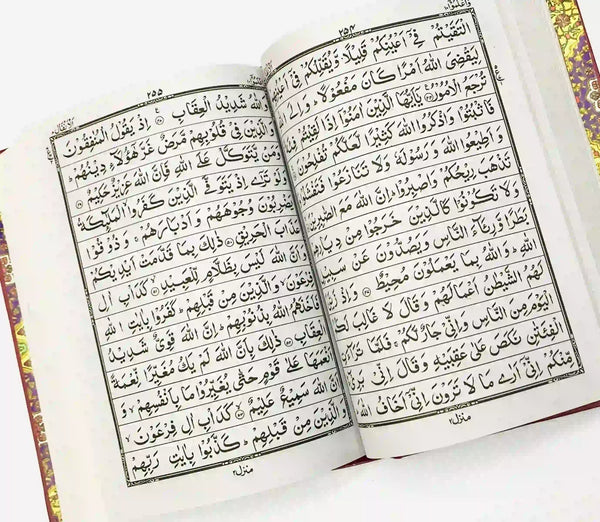 ٢٥٤
الْتَقَيْتُمْ فِيْۤ اَعْيُنِكُمْ قَلِيْلًا وَّيُقَلِّلُكُمْ فِيْۤ
لِيَقْضِيَ اللّٰهُ اَمْرًا كَانَ مَفْعُوْلًا ؕ
تُرْجَعُ الْاُمُوْرُ ﴿۴۴﴾ يٰۤاَيُّهَا الَّذِيْنَ اٰمَنُوْۤا اِذَا لَقِيْتُمْ
فَاثْبُتُوْا وَاذْكُرُوا اللّٰهَ كَثِيْرًا لَّعَلَّكُمْ تُفْلِحُوْنَ
وَاَطِيْعُوا اللّٰهَ وَرَسُوْلَهٗ وَلَا تَنَازَعُوْا فَتَفْشَلُوْا
تَذْهَبَ رِيْحُكُمْ وَاصْبِرُوْا ؕ اِنَّ اللّٰهَ مَعَ الصّٰبِرِيْنَ
وَلَا تَكُوْنُوْا كَالَّذِيْنَ خَرَجُوْا مِنْ دِيَارِهِمْ
بَطَرًا وَّرِئَآءَ النَّاسِ وَيَصُدُّوْنَ عَنْ سَبِيْلِ
اللّٰهِ ؕ وَاللّٰهُ بِمَا يَعْمَلُوْنَ مُحِيْطٌ ﴿۴۷﴾ وَاِذْ زَيَّنَ
لَهُمُ الشَّيْطٰنُ اَعْمَالَهُمْ وَقَالَ لَا غَالِبَ لَكُمُ
الْيَوْمَ مِنَ النَّاسِ وَاِنِّيْ جَارٌ لَّكُمْ ۚ فَلَمَّا تَرَآءَتِ
الْفِئَتٰنِ نَكَصَ عَلٰى عَقِبَيْهِ وَقَالَ اِنِّيْ بَرِيْٓءٌ
مِّنْكُمْ اِنِّيْۤ اَرٰى مَا لَا تَرَوْنَ اِنِّيْۤ اَخَافُ اللّٰهَ
منزل ٢
٢٥٥
وَاللّٰهُ شَدِيْدُ الْعِقَابِ ﴿۴۸﴾ اِذْ يَقُوْلُ الْمُنٰفِقُوْنَ
وَالَّذِيْنَ فِيْ قُلُوْبِهِمْ مَّرَضٌ غَرَّ هٰۤؤُلَآءِ دِيْنُهُمْ ؕ
وَمَنْ يَّتَوَكَّلْ عَلَى اللّٰهِ فَاِنَّ اللّٰهَ عَزِيْزٌ حَكِيْمٌ ﴿۴۹﴾
وَلَوْ تَرٰۤى اِذْ يَتَوَفَّى الَّذِيْنَ كَفَرُوا الْمَلٰٓئِكَةُ
يَضْرِبُوْنَ وُجُوْهَهُمْ وَاَدْبَارَهُمْ ۚ وَذُوْقُوْا
عَذَابَ الْحَرِيْقِ ﴿۵۰﴾ ذٰلِكَ بِمَا قَدَّمَتْ اَيْدِيْكُمْ
وَاَنَّ اللّٰهَ لَيْسَ بِظَلَّامٍ لِّلْعَبِيْدِ ﴿۵۱﴾ كَدَاْبِ اٰلِ
فِرْعَوْنَ ۙ وَالَّذِيْنَ مِنْ قَبْلِهِمْ ؕ كَفَرُوْا بِاٰيٰتِ اللّٰهِ
فَاَخَذَهُمُ اللّٰهُ بِذُنُوْبِهِمْ ؕ اِنَّ اللّٰهَ قَوِيٌّ شَدِيْدُ
الْعِقَابِ ﴿۵۲﴾ ذٰلِكَ بِاَنَّ اللّٰهَ لَمْ يَكُ مُغَيِّرًا نِّعْمَةً
اَنْعَمَهَا عَلٰى قَوْمٍ حَتّٰى يُغَيِّرُوْا مَا بِاَنْفُسِهِمْ ۙ وَ
اَنَّ اللّٰهَ سَمِيْعٌ عَلِيْمٌ ﴿۵۳﴾ كَدَاْبِ اٰلِ فِرْعَوْنَ ۙ
وَالَّذِيْنَ مِنْ قَبْلِهِمْ ؕ كَذَّبُوْا بِاٰيٰتِ رَبِّهِمْ
منزل ٢